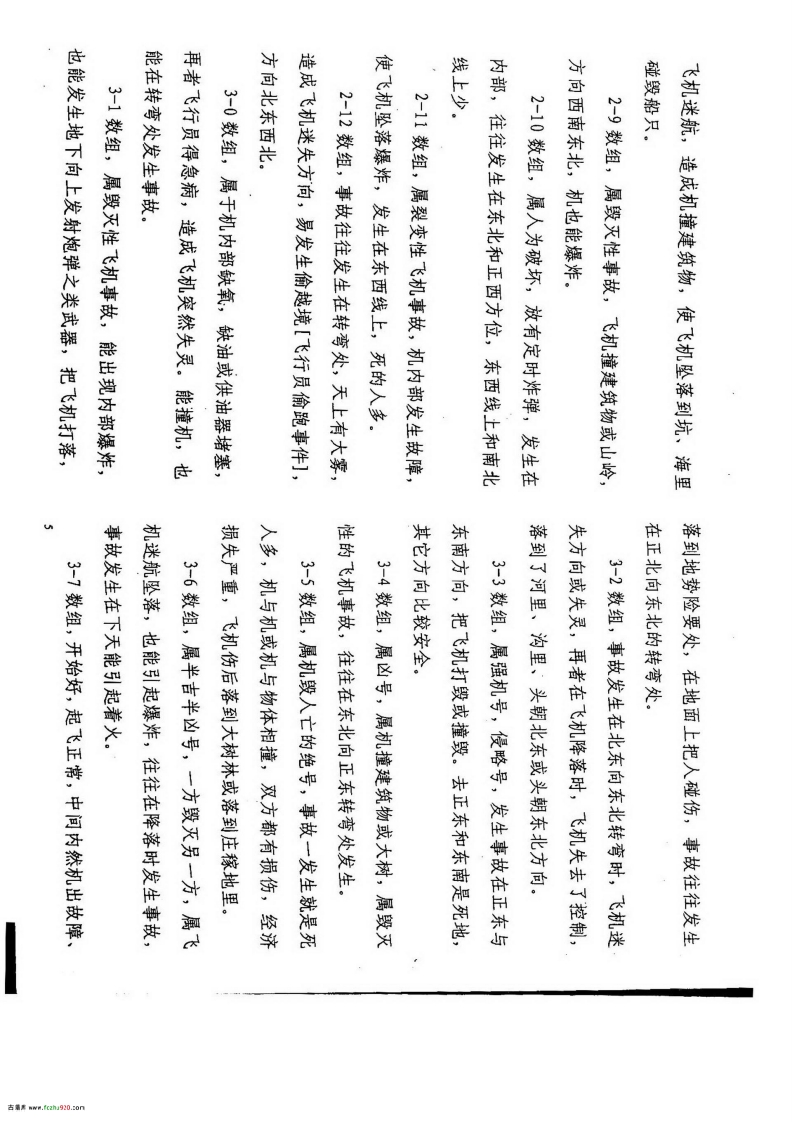 飞机迷航，造成机撞建筑物，使飞机坠落到坑、海里
碰毁船只。
2-9 数组，属毁灭性事故，飞机撞建筑物或山岭，
方向西南东北，机也能爆炸。
2-10 数组，属人为破坏，放有定时炸弹，发生在
内部，往往发生在东北和正西方位，东西线上和南北
线上少。
2-11 数组，属裂变性飞机事故，机内部发生故障，
使飞机坠落爆炸，发生在东西线上，死的人多。
2-12 数组，事故往往发生在转弯处，天上有大雾，
造成飞机迷失方向，易发生偷越境[飞行员偷跑事件]，
方向北东西北。
3-0 数组，属于机内部缺氧，缺油或供油器堵塞，
再者飞行员得急病，造成飞机突然失灵。能撞机，也
能在转弯处发生事故。
3-1 数组，属毁灭性飞机事故，能出现内部爆炸，
也能发生地下向上发射炮弹之类武器，把飞机打落，
落到地势险要处，在地面上把人碰伤，事故往往发生
在正北向东北的转弯处。
3-2 数组，事故发生在北东向东北转弯时，飞机迷
失方向或失灵，再者在飞机降落时，飞机失去了控制，
落到了河里、沟里、头朝北东或头朝东北方向。
3-3 数组，属强机号，侵略号，发生事故在正东与
东南方向，把飞机打毁或撞毁。去正东和东南是死地，
其它方向比较安全。
3-4 数组，属凶号，属机撞建筑物或大树，属毁灭
性的飞机事故，往往在东北向正东转弯处发生。
3-5 数组，属机毁人亡的绝号，事故一发生就是死
人多，机与机或机与物体相撞，双方都有损伤，经济
损失严重，飞机伤后落到大树林或落到庄稼地里。
3-6 数组，属半吉半凶号，一方毁灭另一方，属飞
机迷航坠落，也能引起爆炸，往往在降落时发生事故，
事故发生在下天能引起着火。
3-7 数组，开始好，起飞正常，中间内然机出故障、
5
古籍库 www.fczhu920.com